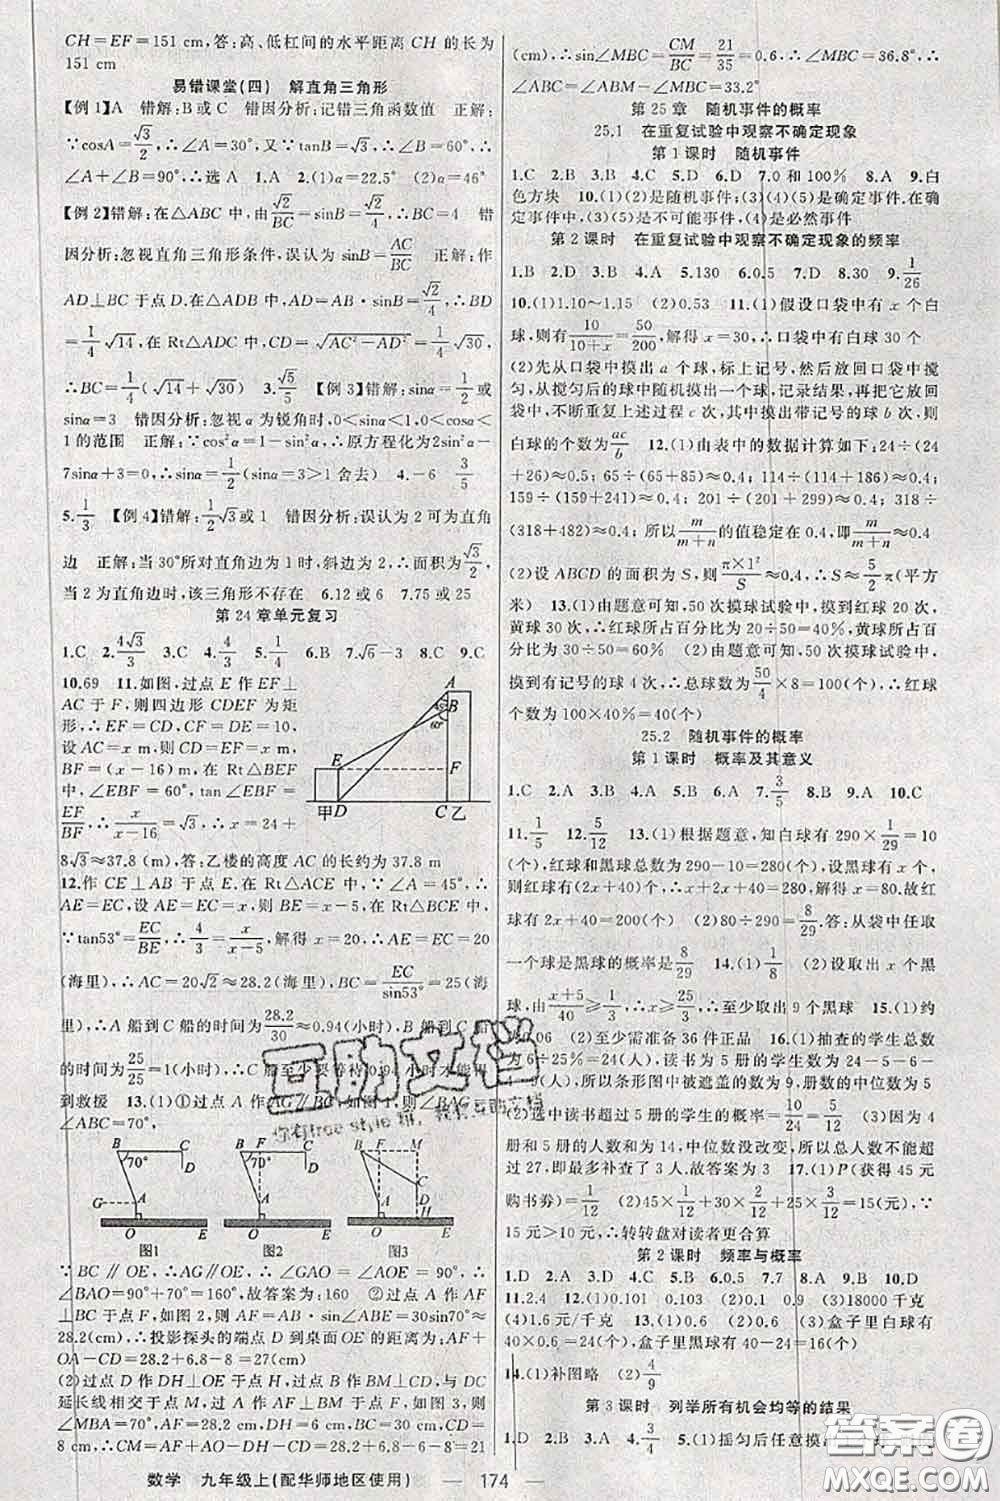 CH=EF=151 cm,答:高、低杠间的水平距离 CH 的长为
151 cm
易错课堂(四) 解直角三角形
【例1】A 错解:B或C 错因分析:记错三角函数值 正解:
∵cosA=√3/2,∴∠A=30°,又∵tanB=√3,∴∠B=60°,∴∠
A+∠B=90°,∴选 A 1.A 2.(1)α=22.5° (2)α=46°
【例2】错解:在△ABC 中,由√2/BC=√2/4,∴BC=4 错
因分析:忽视直角三角形条件,误认为 sinB=AC/BC 正解:作
AD⊥BC 于点 D,在△ADB 中,AD=AB·sinB=√2/4,∴BD
=1/4√14,在 Rt△ADC 中,CD=√(AC²-AD²)=1/4√30,
∴BC=1/4(√14+√30) 3.√5/5 【例3】错解:sinα=1/2或
sinα=3 错因分析:忽视 α 为锐角时,0<sinα<1,0<cosα<
1的范围 正解:∵cos²α=1-sin²α,∴原方程化为2sin²α-
7sinα+3=0,∴sinα=1/2(sinα=3>1舍去) 4.-6 3/5
5.1/3 【例4】错解:1/2√3或1 错因分析:误认为2可为直角
边 正解:当30°所对直角边为1时,斜边为2,∴面积为√3/2,
当2为直角边时,该三角形不存在 6.12或6 7.75或25
第24章单元复习
1.C 2.4√3/3 3.C 4.4/3 5.1/3 6.B 7.√6-3 8.C 9.C
10.69 11.如图,过点 E 作EF⊥
AC于F,则四边形 CDEF 为矩
形,∴EF=CD,CF=DE=10,
设AC=x m,则CD=EF=x m,
BF=(x-16)m,在 Rt△BEF
中,∠EBF=60°,tan∠EBF=
EF/BF,∴x/(x-16)=√3,∴x=24+
8√3≈37.8(m),答:乙楼的高度 AC 的长约为 37.8 m
A
45°
B
60°
E
F
甲D
C乙
12.作 CE⊥AB 于点 E,在 Rt△ACE 中,∵∠A=45°,∴
AE=EC,设 AE=EC=x,则 BE=x-5,在 Rt△BCE 中,
∵tan53°=EC/BE,∴4/3=x/(x-5),解得 x=20,∴AE=EC=20
(海里),∴AC=20√2≈28.2(海里),BC=EC/sin53°≈25(海
里),∴A 船到 C 船的时间为28.2/30≈0.94(小时),B 船到 C 船
的时间为25/25=1(小时),∴C 船至少要等待0.94小时才能得
到救援 13.(1)①过点 A 作AG∥BC,如图1,则∠BAG=
∠ABC=70°,
B C 70° D G A O E
图1
B F C 70° D A O E
图2
B F M C A D O H E
图3
∵BC∥OE,∴AG∥OE,∴∠GAO=∠AOE=90°,∴
∠BAO=90°+70°=160°,故答案为:160 ②过点 A 作
AF⊥BC 于点 F,如图2,则 AF=AB·sin∠ABC=30sin70°≈
28.2(cm),∴投影探头的端点 D 到桌面OE的距离为:AF+
OA-CD=28.2+6.8-8=27(cm)
(2)过点 D 作DH⊥OE 于点 H,过点 B 作BM⊥CD,与 DC
延长线相交于点 M,过点 A 作AF⊥BM 于点 F,如图3,则
∠MBA=70°,AF=28.2 cm,DH=6 cm,BC=30 cm,CD=
8 cm,∴CM=AF+AO-DH-CD=28.2+6.8-6-8=21
(cm),∴sin∠MBC=CM/BC=21/35=0.6,∴∠MBC=36.8°,∴
∠ABC=∠ABM-∠MBC=33.2°
第25章 随机事件的概率
25.1 在重复试验中观察不确定现象
第1课时 随机事件
1.C 2.B 3.B 4.C 5.D 6.D 7.0和100% 8.A 9.白
色方块 10.(1)(2)是随机事件;(3)(4)(5)是确定事件,在确
定事件中,(3)(5)是不可能事件,(4)是必然事件
第2课时 在重复试验中观察不确定现象的频率
1.B 2.D 3.B 4.A 5.130 6.0.5 7.D 8.30 9.1/26
10.(1)1.10~1.15 (2)0.53 11.(1)假设口袋中有 x 个白
球,则有10/(10+x)=50/200,解得 x=30,∴口袋中有白球 30 个
(2)先从口袋中摸出 a 个球,标上记号,然后放回口袋中搅
匀,从搅匀后的球中随机摸出一个球,记录结果,再把它放回
袋中,不断重复上述过程 c 次,其中摸出带记号的球 b 次,则
白球的个数为ac/b 12.(1)由表中的数据计算如下:24÷(24
+26)≈0.5;65÷(65+85)≈0.4;114÷(114+186)≈0.4;
159÷(159+251)≈0.4;201÷(201+299)≈0.4;318÷
(318+482)≈0.4;所以m/(m+n)的值稳定在0.4,即m/(m+n)≈0.4
(2)设 ABCD 的面积为 S,则π×1²/S≈0.4,∴S≈5/2π(平方
米) 13.(1)由题意可知,50次摸球试验中,摸到红球20次,
黄球30次,∴红球所占百分比为20÷50=40%,黄球所占百
分比为30÷50=60% (2)由题意可知,50次摸球试验中,
摸到有记号的球4次,∴总球数为50/4×8=100(个),∴红球
个数为100×40%=40(个)
25.2 随机事件的概率
第1课时 概率及其意义
1.C 2.C 3.B 4.B 5.B 6.A 7.3/5 8.A 9.A 10.C
11.1/5 12.5/12 13.(1)根据题意,知白球有290×1/29=10
(个),红球和黑球总数为290-10=280(个),设黑球有 x 个,
则红球有(2x+40)个,∴x+2x+40=280,解得 x=80.故红
球有2x+40=200(个) (2)80÷290=8/29.答:从袋中任取
一个球是黑球的概率是8/29 14.(1)1/8 (2)设取出 x 个黑
球,由(x+5)/40≥1/3,∴x≥25/3,∴至少取出9个黑球 15.(1)约
为0.06 (2)至少需准备36件正品 16.(1)抽查的学生总数
为6÷25%=24(人),读书为5册的学生数为24-5-6-
4=9(人),所以条形图中被遮盖的数为9,册数的中位数为5
(2)选中读书超过5册的学生的概率为10/24=5/12 (3)因为4
册和5册的人数和为14,中位数没改变,所以总人数不能超
过27,即最多补查了3人.故答案为3 17.(1)P(获得45元
购书券)=1/12 (2)45×1/12+30×2/12+25×3/12=15(元),∵
15元>10元,∴转转盘对读者更合算
第2课时 频率与概率
1.D 2.A 3.B 4.C 5.B 6.0.5 7.7 8.B 9.B 10.D
11.2.4 12.(1)0.6 (2)0.6 13.(1)0.1 0.9 (3)18000千克
(4)1.6元/千克 (5)6.5千克 盒子里红球有
40×0.6=24(个),盒子里黑球有40-24=16(个)
14.(1)补图略 (2)4/9
第3课时 列举所有机会均等的结果
1.D 2.A 3.C 4.3/4 5.(1)摇匀后任意摸出
数学 九年级上(配华师地区使用) — 174 —
互助文档
答案圈
MXQE.COM